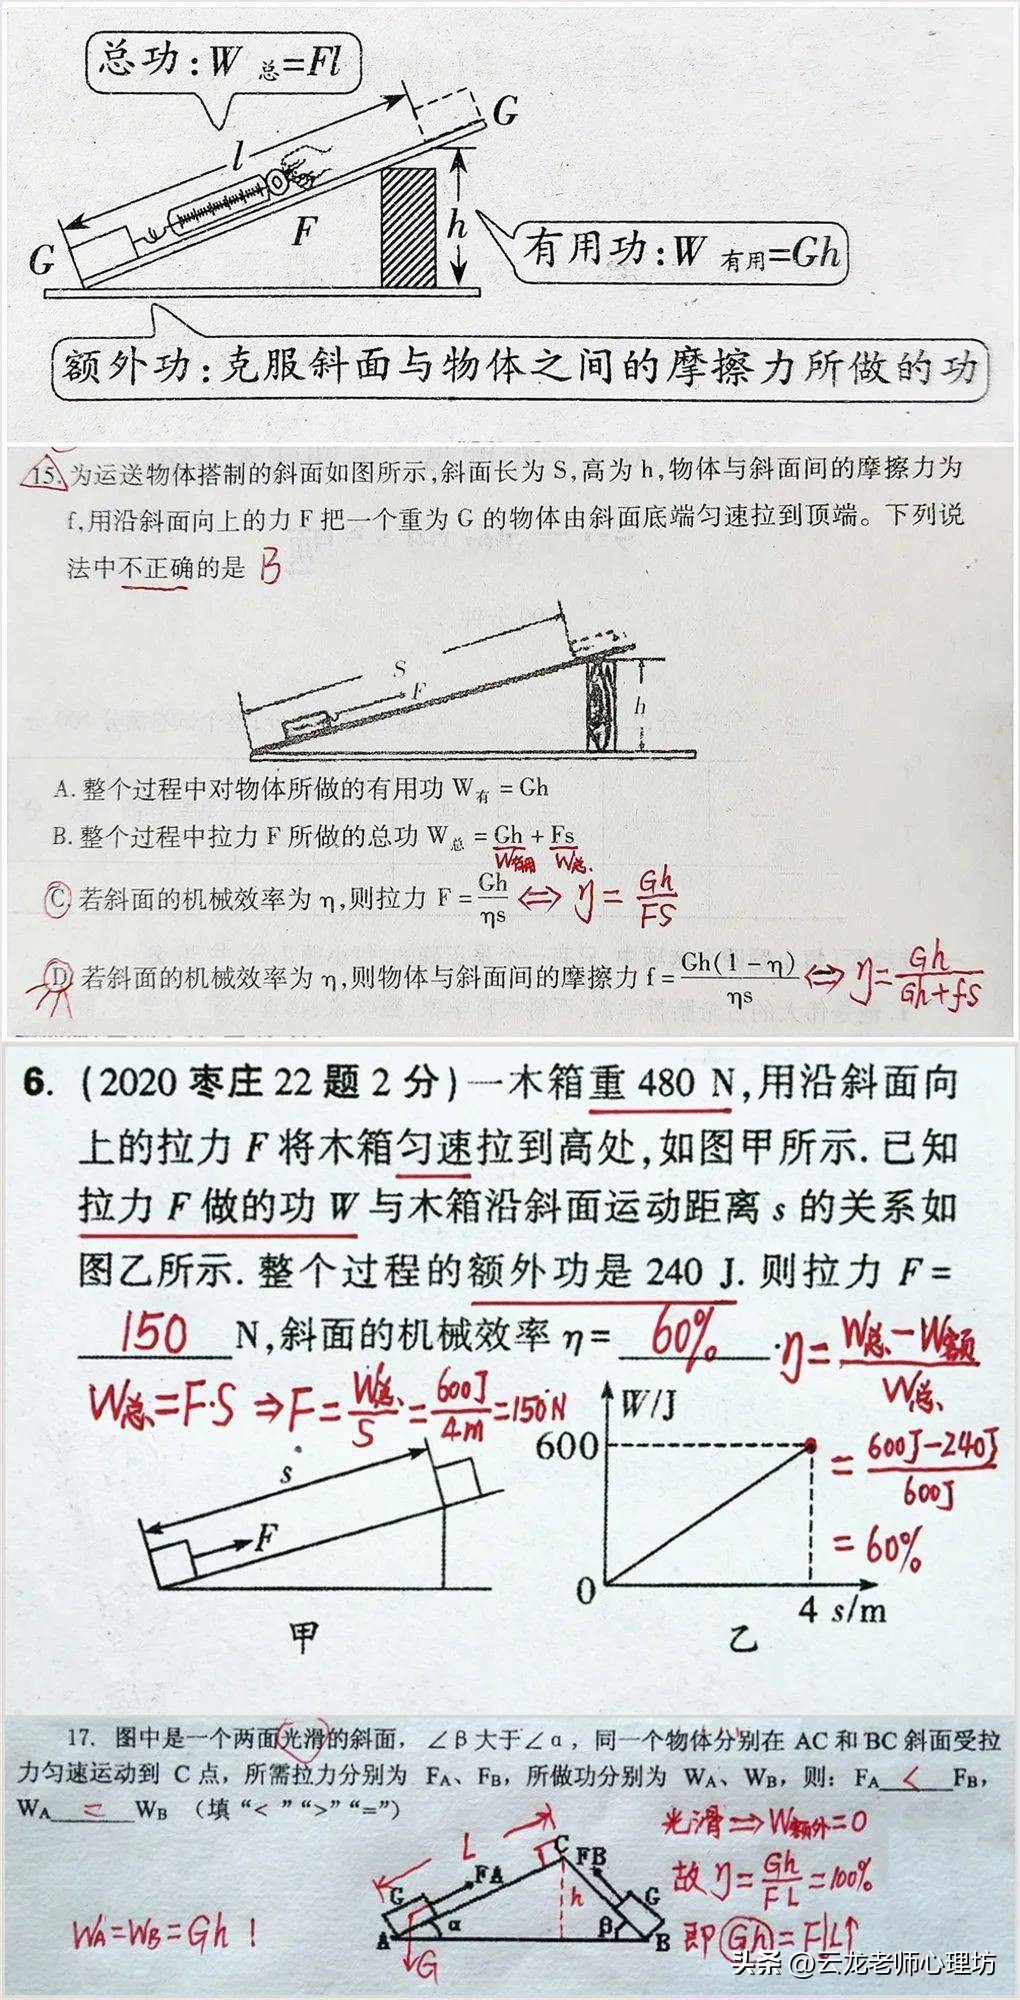 总功:W总=Fl
l
G
G
F
h
有用功:W有用=Gh
额外功:克服斜面与物体之间的摩擦力所做的功
15.为运送物体搭制的斜面如图所示,斜面长为S,高为h,物体与斜面间的摩擦力为
f,用沿斜面向上的力F把一个重为G的物体由斜面底端匀速拉到顶端。下列说
法中不正确的是 B
S
F
h
A.整个过程中对物体所做的有用功W有=Gh
B.整个过程中拉力F所做的总功W总=Gh+Fs
W有用 W总.
C.若斜面的机械效率为η,则拉力F=Gh/ηs ⇔ η=Gh/FS
D.若斜面的机械效率为η,则物体与斜面间的摩擦力f=Gh(1-η)/ηs ⇔ η=Gh/Gh+fS
6.(2020枣庄22题2分)一木箱重480 N,用沿斜面向
上的拉力F将木箱匀速拉到高处,如图甲所示.已知
拉力F做的功W与木箱沿斜面运动距离s的关系如
图乙所示.整个过程的额外功是240 J.则拉力F=
150 N,斜面的机械效率η= 60% .η=W总-W额/W总
W总=F·S ⇒F=W总/S=600J/4m=150N
=600J-240J/600J
=60%
s
F
甲
W/J
600
0
4 s/m
乙
17. 图中是一个两面光滑的斜面，∠β大于∠α，同一个物体分别在 AC 和 BC 斜面受拉
力匀速运动到 C 点，所需拉力分别为 FA、FB，所做功分别为 WA、WB，则：FA < FB，
WA = WB （填“<”“>”“=”）
光滑⇒W额外=0
故η=Gh/FL=100%
即Gh=F↓L↑
WA=WB=Gh !
L
C
FA
FB
G
G
h
α
β
A
B
G
头条 @云龙老师心理坊